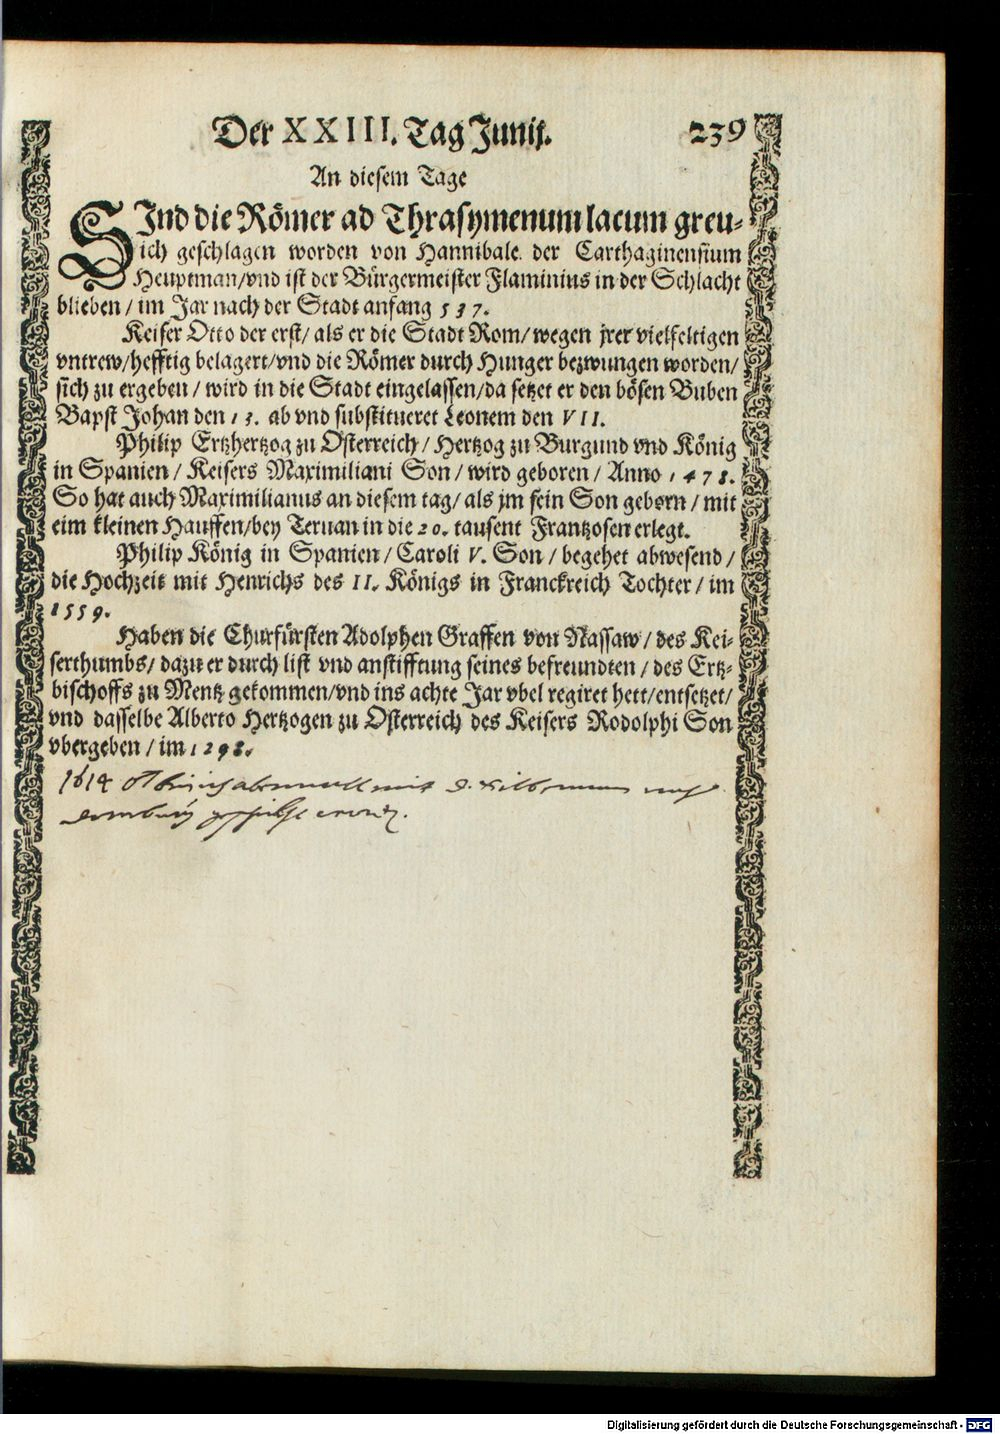 Der XXIII. Tag Junij. 239
An diesem Tage
SInd die Römer ad Thrasymenum lacum greu-
lich geschlagen worden von Hannibale der Carthaginensium
Heuptman/vnd ist der Bürgermeister Flaminius in der Schlacht
blieben / im Jar nach der Stadt anfang 537.
Keiser Otto der erst/ als er die Stadt Rom/ wegen jrer vielfeltigen
vntrew/hefftig belagert/vnd die Römer durch Hunger bezwungen worden/
sich zu ergeben / wird in die Stadt eingelassen/da setzet er den bösen Buben
Bapst Johan den 13. ab vnd substitueret Leonem den VII.
Philip Ertzhertzog zu Osterreich / Hertzog zu Burgund vnd König
in Spanien / Keisers Maximiliani Son / wird geboren / Anno 1478.
So hat auch Maximilianus an diesem tag/ als jm sein Son geborn / mit
eim kleinen Hauffen/bey Teruan in die 20. tausent Frantzosen erlegt.
Philip König in Spanien / Caroli V. Son / begehet abwesend /
die Hochzeit mit Henrichs des II. Königs in Franckreich Tochter / im
1559.
Haben die Churfürsten Adolphen Graffen von Nassaw / des Kei-
serthumbs/ dazu er durch list vnd anstifftung seines befreundten / des Ertz-
bischoffs zu Mentz gekommen/vnd ins achte Jar vbel regiret hett/entsetzet/
vnd dasselbe Alberto Hertzogen zu Osterreich des Keisers Rodolphi Son
vbergeben / im 1298.
1614
Digitalisierung gefördert durch die Deutsche Forschungsgemeinschaft - DFG